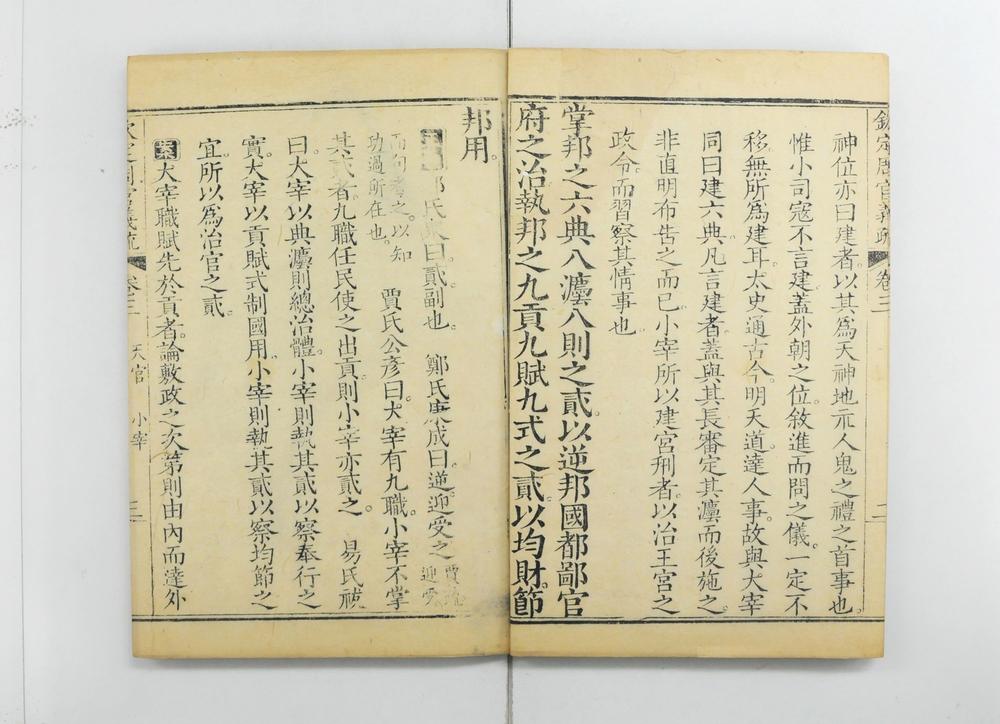 欽定周官義疏 卷三 二
神位亦曰建者以其爲天神地示人鬼之禮之首事也
惟小司寇不言建蓋外朝之位敘進而問之儀一定不
移無所爲建耳太史通古今明天道達人事故與大宰
同曰建六典凡言建者蓋與其長審定其灋而後施之
非直明布告之而已小宰所以建宮刑者以治王宮之
政令而習察其情事也
掌邦之六典八灋八則之貳以逆邦國都鄙官
府之治執邦之九貢九賦九式之貳以均財節
邦用
鄭氏衆曰貳副也 鄭氏康成曰逆迎受之 賈疏迎受
而句考之以知
功過所在也 賈氏公彥曰大宰有九職小宰不掌
其貳者九職任民使之出貢則小宰亦貳之 易氏祓
曰大宰以典灋則總治體小宰則執其貳以察奉行之
實大宰以貢賦式制國用小宰則執其貳以察均節之
宜所以爲治官之貳
案大宰職賦先於貢者論敷政之次第則由內而達外
欽定周官義疏 卷三 天官 小宰 三